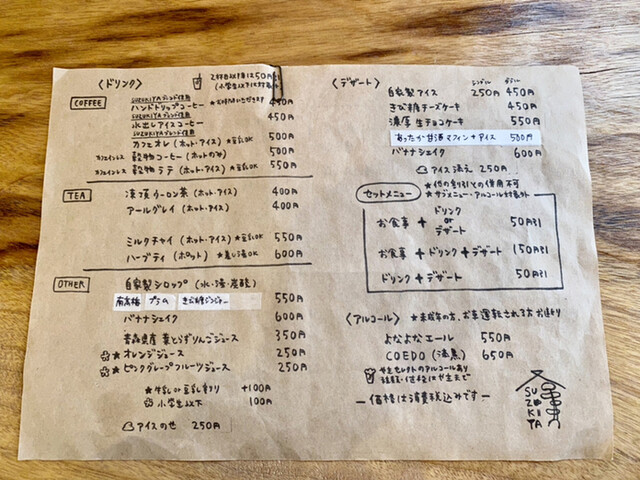 〈ドリンク〉
2杯目以降は50円引
(小学生以下は対象外)
COFFEE
SUZUKIYAブレンド使用
ハンドドリップコーヒー 450円
★お時間いただきます
SUZUKIYAブレンド使用
水出しアイスコーヒー 450円
SUZUKIYAブレンド使用
カフェオレ (ホット・アイス) ★豆乳OK 550円
カフェインレス 穀物コーヒー (ホットのみ) 500円
カフェインレス 穀物ラテ (ホット・アイス) ★豆乳OK 550円
TEA
凍頂ウーロン茶 (ホット・アイス) 400円
アールグレイ (ホット・アイス) 400円
ミルクチャイ (ホット・アイス) ★豆乳OK 550円
ハーブティ (ポット) ★差し湯OK 600円
OTHER
自家製シロップ (水・湯・炭酸)
南高梅 プラム きび糖ジンジャー 550円
バナナシェイク 600円
青森県産 葉とらずりんごジュース 350円
★オレンジジュース 250円
★ピンクグレープフルーツジュース 250円
★牛乳or豆乳割り +100円
小学生以下 100円
アイスのせ 250円
〈デザート〉
シングル ダブル
自家製アイス 250円 450円
きび糖チーズケーキ 450円
濃厚 生チョコケーキ 550円
あったか甘酒マフィン+アイス 500円
バナナシェイク 600円
アイス添え 250円
セットメニュー
★他の割引との併用不可
★サブメニュー・アルコール対象外
お食事 + ドリンク or デザート 50円引
お食事 + ドリンク + デザート 150円引
ドリンク + デザート 50円引
〈アルコール〉
★未成年の方、お車運転される方お断り
よなよなエール 550円
COEDO (漆黒) 650円
やまセレクトのアルコールあり
― 価格は消費税込みです ―
SUZUKIYA